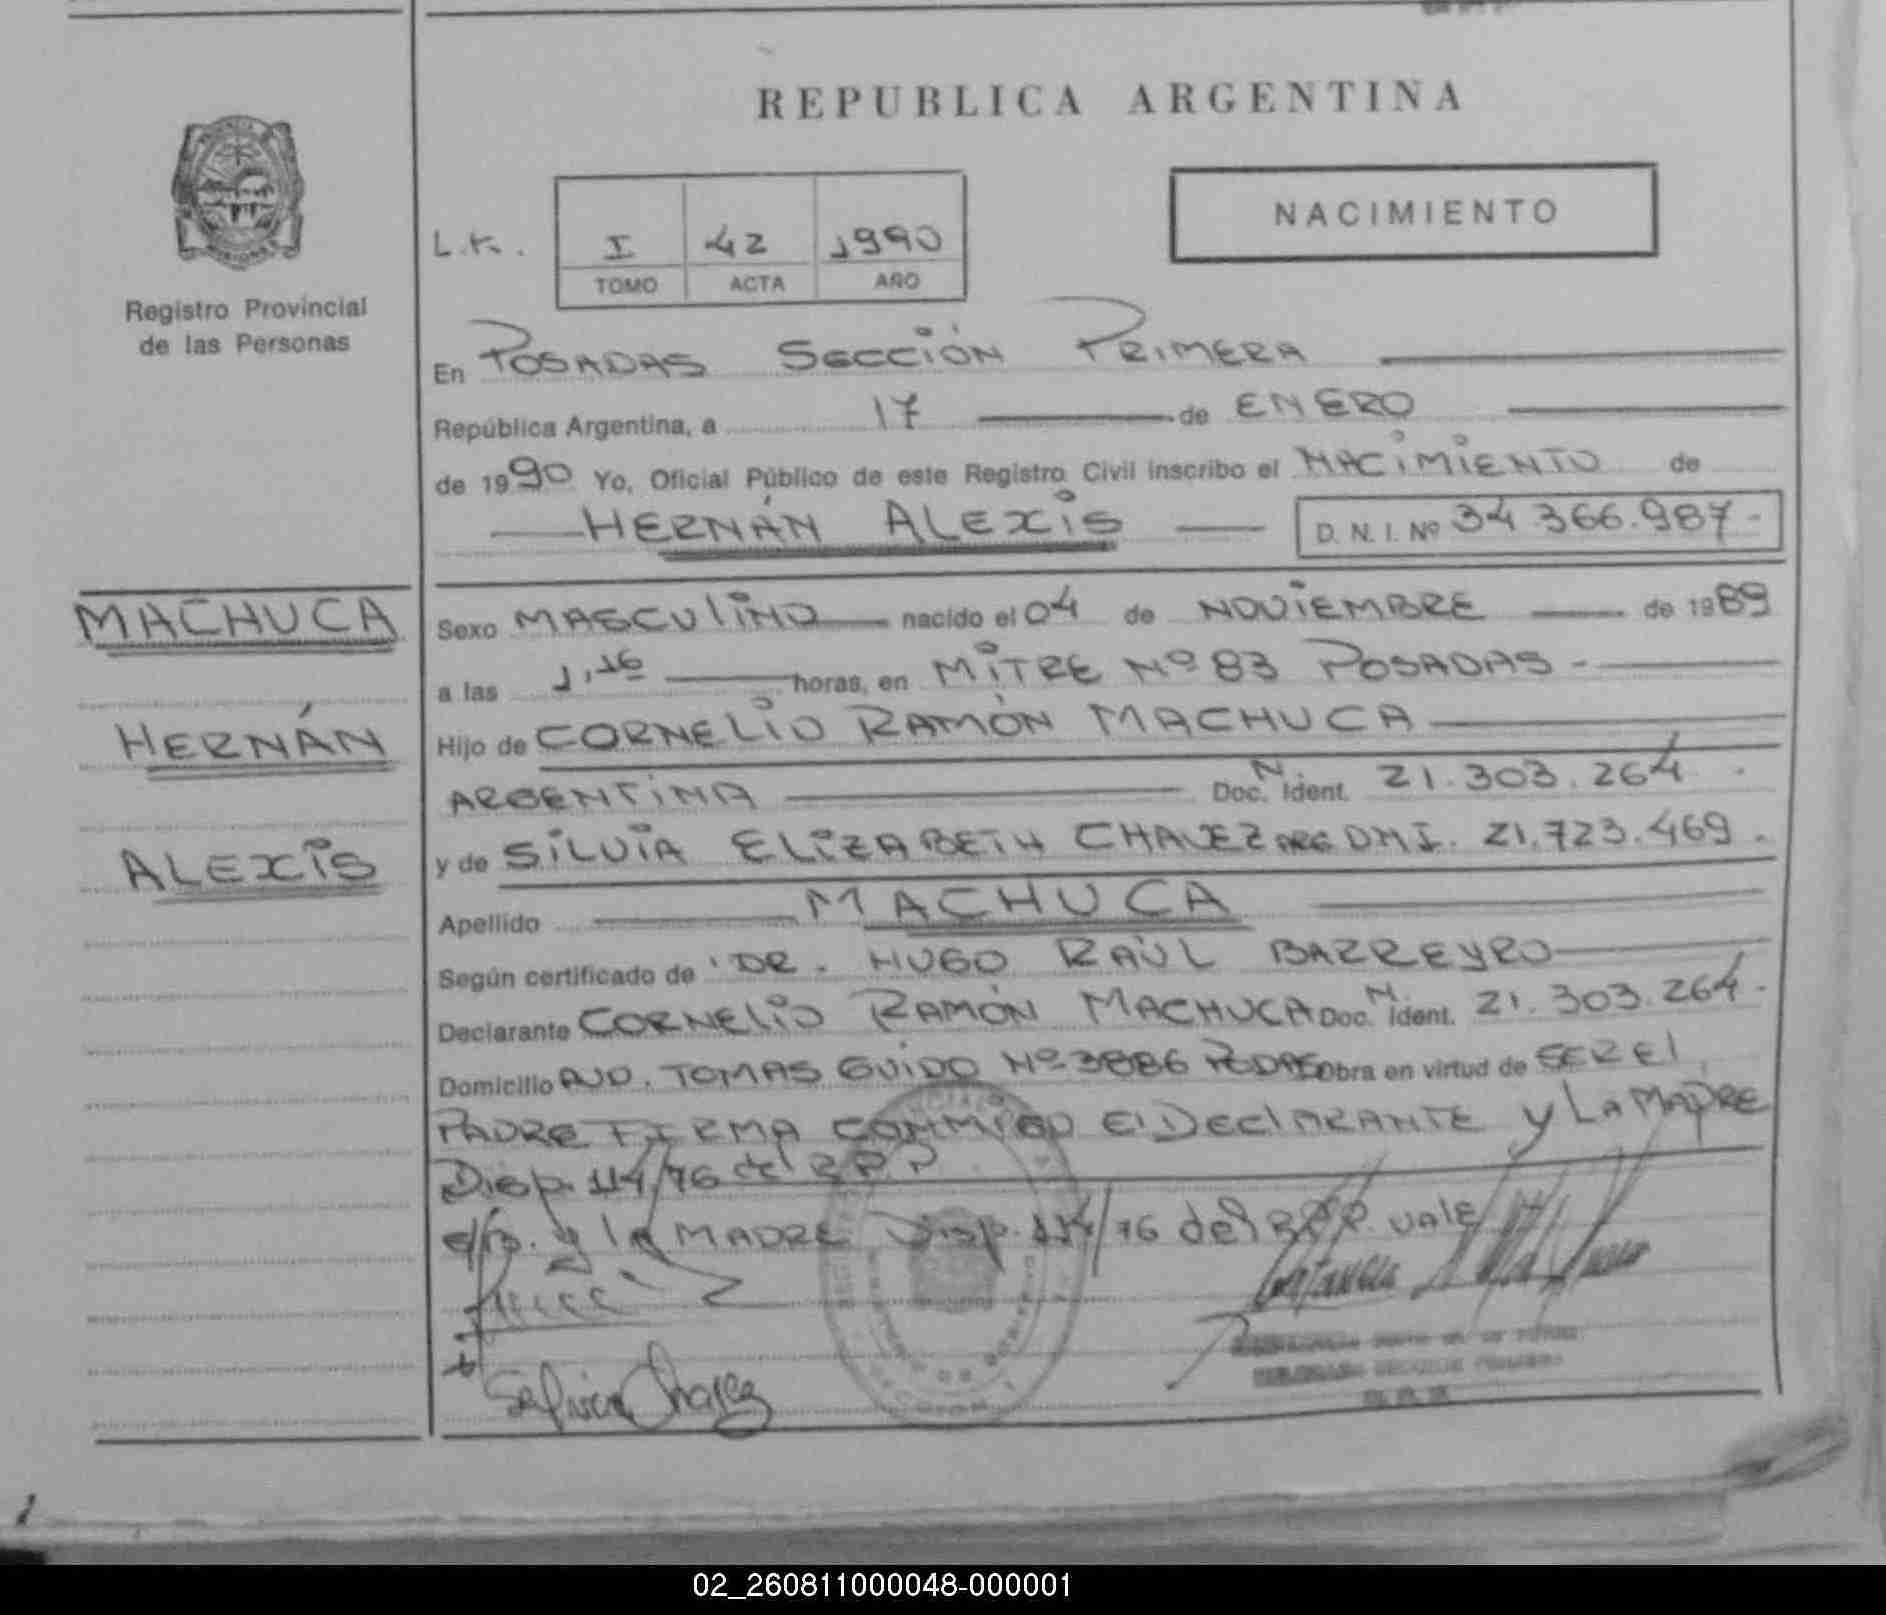 REPUBLICA ARGENTINA
NACIMIENTO
L.K. I 42 1990
TOMO ACTA AÑO
Registro Provincial
de las Personas
En POSADAS SECCIÓN PRIMERA
República Argentina, a 17 de ENERO
de 1990 Yo, Oficial Público de este Registro Civil inscribo el NACIMIENTO de
HERNÁN ALEXIS D. N. I. Nº 34.366.987-
MACHUCA
HERNÁN
ALEXIS
Sexo MASCULINO nacido el 04 de NOVIEMBRE de 1989
a las 1,16 horas, en MITRE Nº 83 POSADAS -
Hijo de CORNELIO RAMÓN MACHUCA
ARGENTINA Doc. N. Ident. 21.303.264.
y de SILVIA ELIZABETH CHAVEZ ARG DNI. 21.723.469.
Apellido MACHUCA
Según certificado de DR. HUGO RAÚL BARREYRO
Declarante CORNELIO RAMÓN MACHUCA Doc. N. Ident. 21.303.264.
Domicilio AVD. TOMAS GUIDO Nº 3886 PODAS Obra en virtud de SER El
PADRE FIRMA CONMIGO El DEClARANTE y LA MADRE
Disp. 114/76 del R.P.P
e/rp. y la MADRE Disp. 114/76 del R.P.P. VALE
Silvia Chavez
02_260811000048-000001